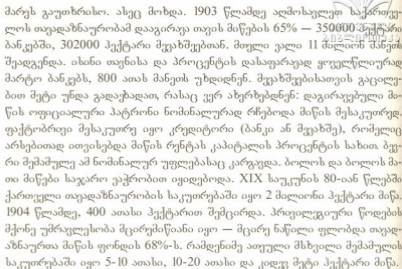 მარეს გაუთხრისო. ასეც მოხდა. 1903 წლამდე აღმოსავლეთ
ლოს თავადაზნაურობამ დააგირავა თავის მიწების 65% — 350000 ჰექტარი
ბანკებში, 302000 ჰექტარი მევახშეებთან. მთელი ვალი 11 მილიონ მანეთს
შეადგენდა. ისინი თავნისა და პროცენტის დასაფარავად ყოველწლიურად
მარტო ბანკებს, 800 ათას მანეთს უხდიდნენ. მევახშეებისათვის გაცილე-
ბით მეტი უნდა გადაეხადათ, რასაც ვერ ახერხებდნენ: დაგირავებული მი-
წის ოფიციალური პატრონი ნომინალურად რჩებოდა მიწის მესაკუთრედ,
ფაქტობრივი მესაკუთრე იყო კრედიტორი (ბანკი ან მევახშე), რომელიც
არსებითად ითვისებდა მიწის რენტას კაპიტალის პროცენტის სახით. ბევ-
რი მემამულე ამ ნომინალურ უფლებასაც კარგავდა. ბოლოს და ბოლოს მა-
თი მიწები საჯარო ვაჭრობით იყიდებოდა. XIX საუკუნის 80-იან წლებში
ქართველი თავადაზნაურობის საკუთრებაში იყო 2 მილიონი ჰექტარი მიწა.
1904 წლამდე, 400 ათასი ჰექტარით შემცირდა. პრივილეგიური წოდების
მქონე უმრავლესობა მცირემიწიანი იყო — მცირე ნაწილი ფლობდა თავად-
აზნაურთა მიწის ფონდის 68%-ს. რამდენიმე ათეული მსხვილი მემამულის
საკუთრებაში იყო 5-10 ათასი, 10-20 ათასი და კიდევ მეტი ჰექტარი მიწა.